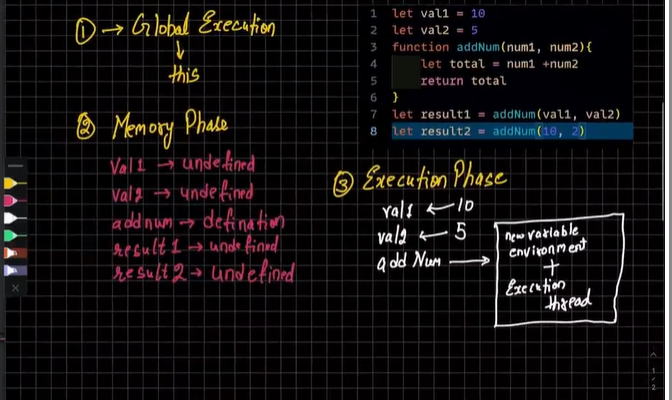 ① → Global Execution
↓
this
② Memory Phase
Val1 → undefined
val2 → undefined
addnum → defination
result1 → undefined
result2 → undefined
1 let val1 = 10
2 let val2 = 5
3 function addNum(num1, num2){
4 let total = num1 +num2
5 return total
6 }
7 let result1 = addNum(val1, val2)
8 let result2 = addNum(10, 2)
③ Execution Phase
val1 ← 10
val2 ← 5
add Num →
new variable
environment
+
Execution
thread
1
2